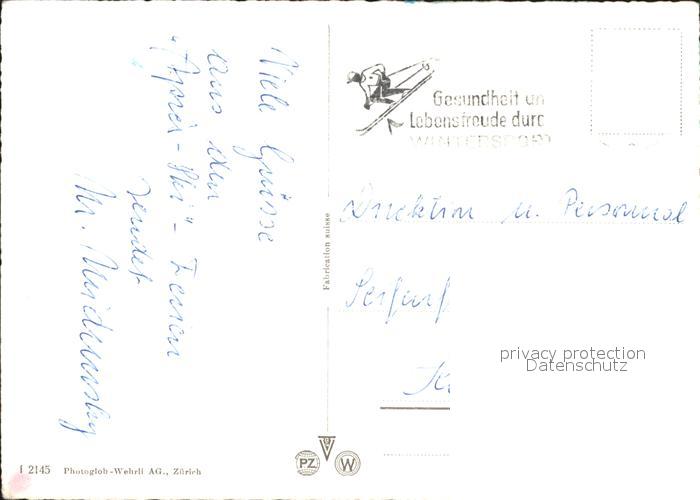 Viele Grüsse
aus den
"Après-Ski"-Ferien
sendet
Gesundheit un
Lebensfreude durc
WINTERSPORT
Direktion u. Personal
Seifenf
Kr
privacy protection
Datenschutz
Fabrication suisse
PZ
W
I 2145 Photoglob-Wehrli AG., Zürich